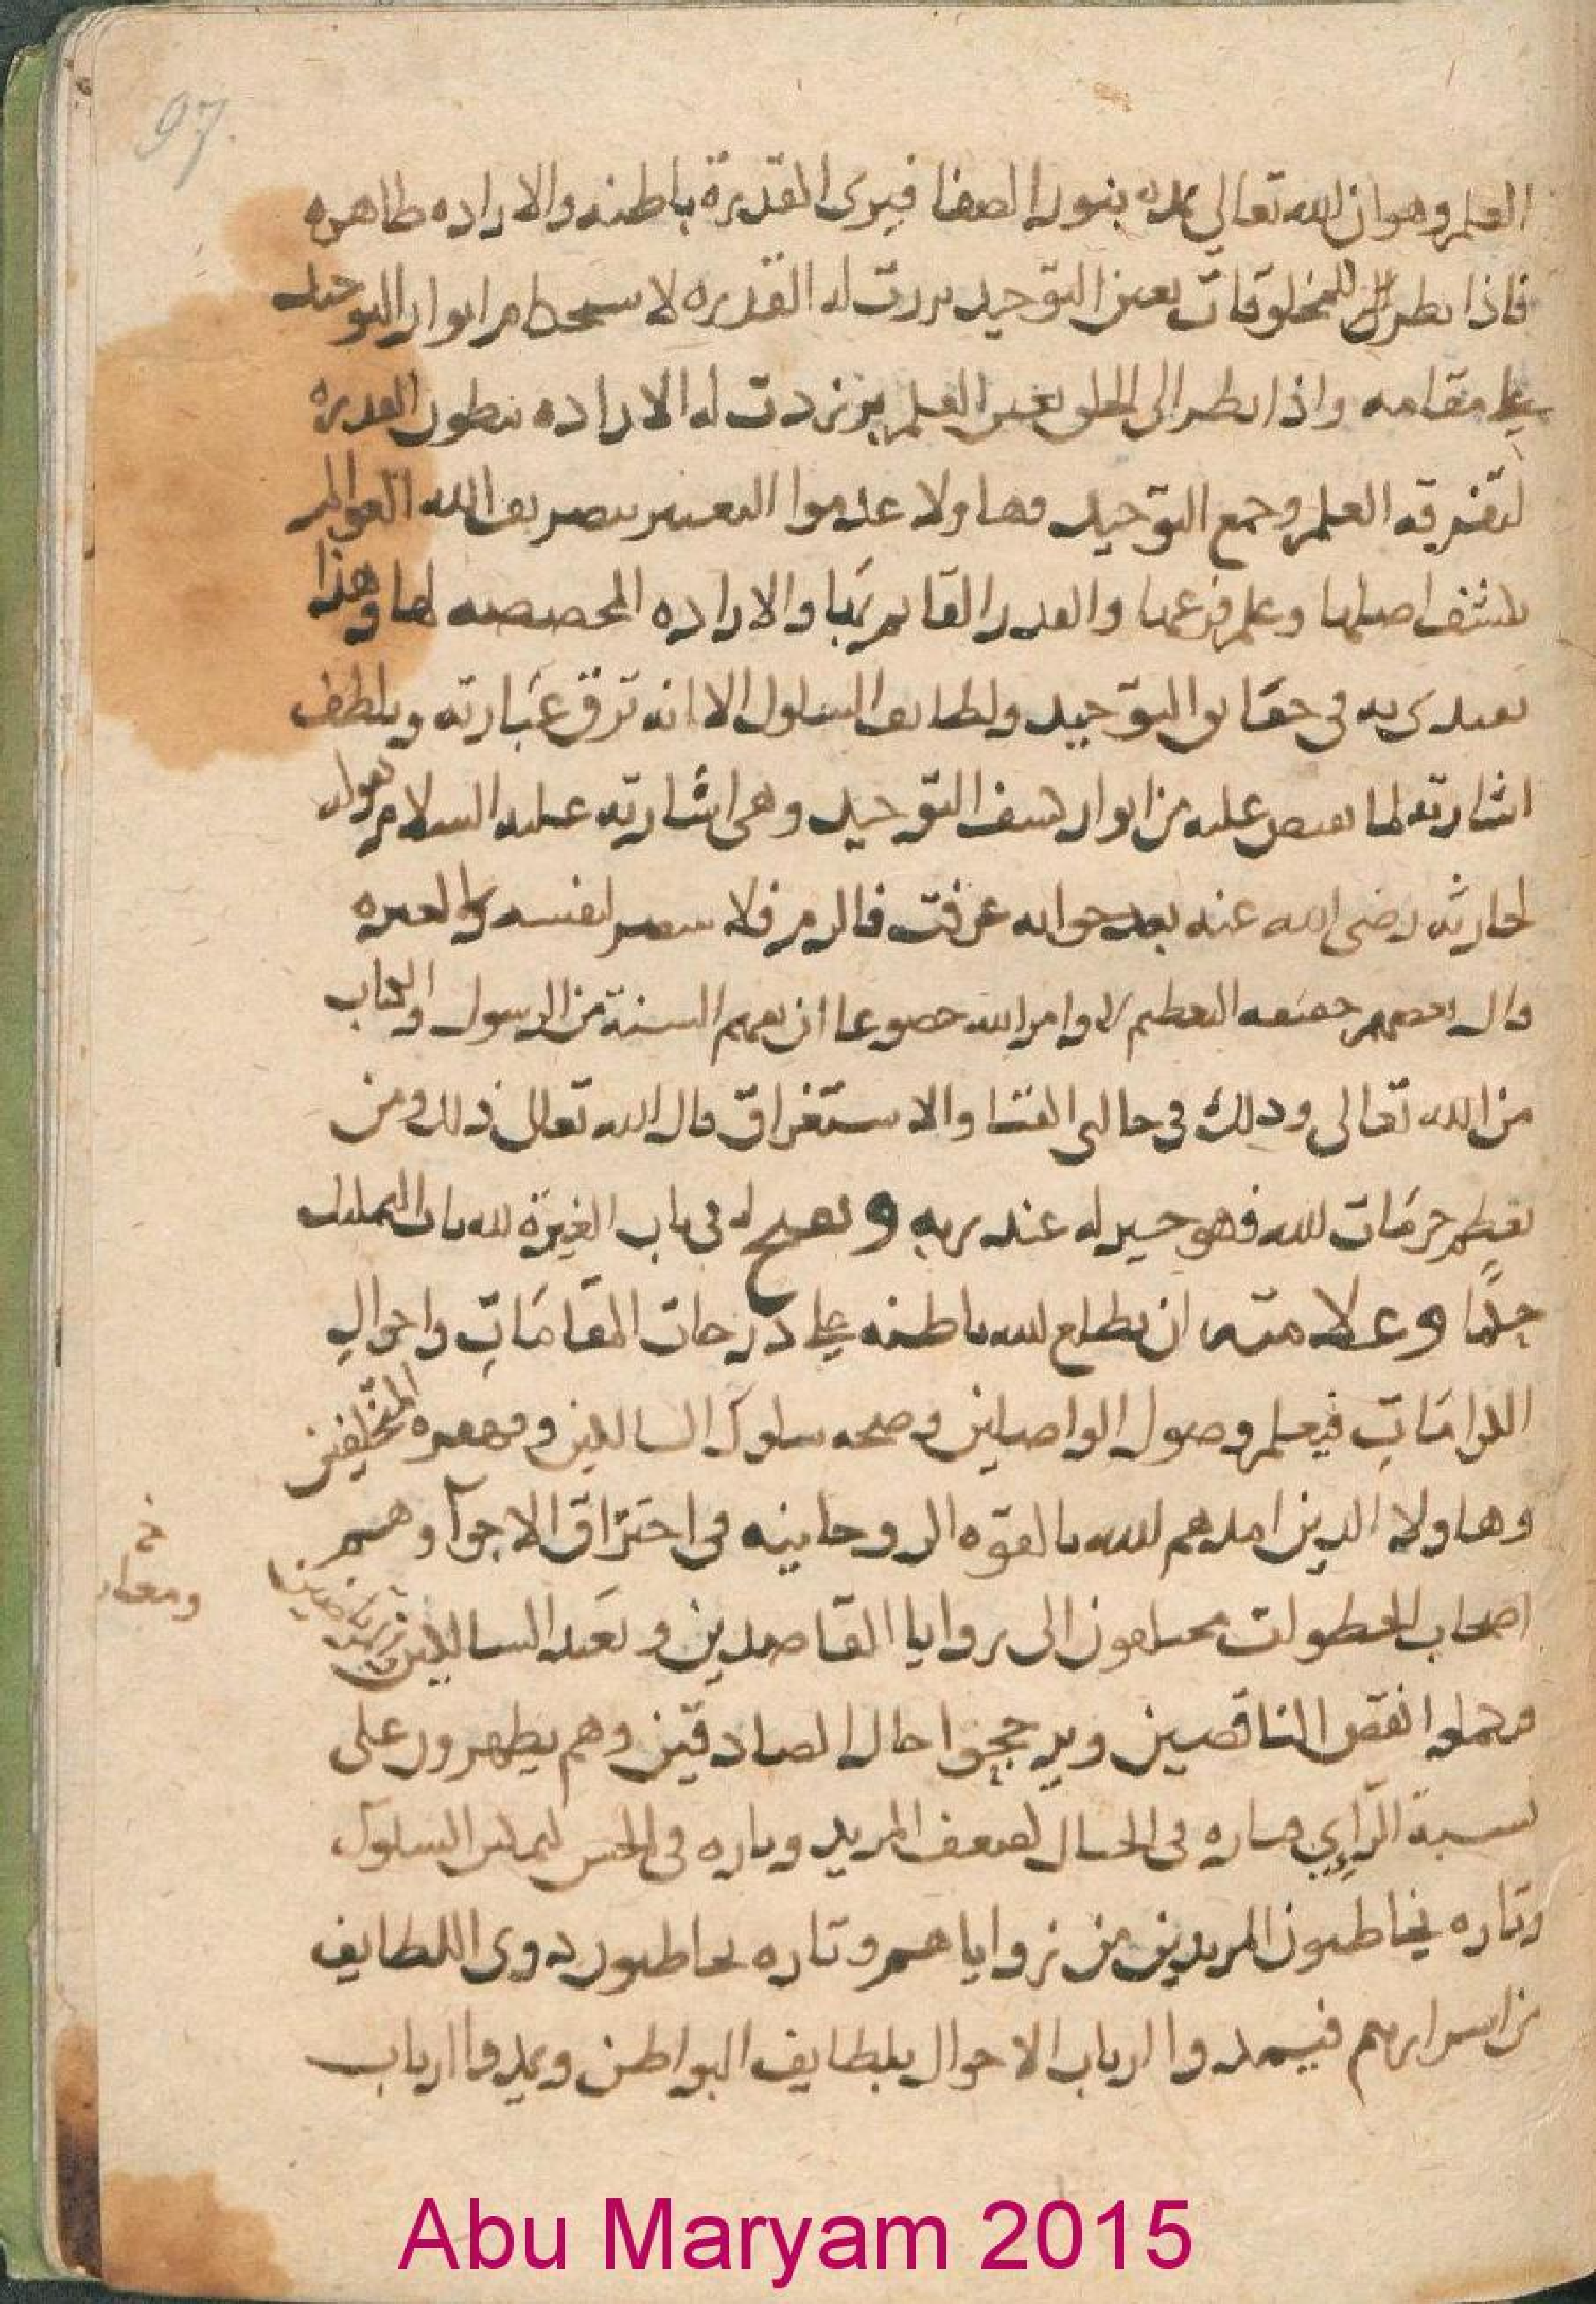 97.
العلم وهو ان الله تعالى يمده بنور الصفا فيرى القدرة باطنه والاراده طاهره
فاذا نظر الى المخلوقات بعين التوحيد بررت له القدره لا انوار التوحيد
على مقامه واذا نظر الى الخلق بعين العلم برزت له الاراده بطور القدره
لتفرقه العلم وجمع التوحيد وهاولا عدموا التعبير بتصريف الله العوالم
بكشف اصلها وعلم فرعها والقدر القايم بها والاراده المخصصه لها وهذا
يقتدى به في حقايق التوحيد ولطايف السلوك الا انه ترق عبارته ويلطف
اشارته لما يفيض عليه من انوار كشف التوحيد وهى اشارته عليه السلام بقوله
لحارثه رضى الله عنه بعد جوابه عرفت فالزم فلا لنفسه ولا لغيره
وال بعضهم حقيقه التعظيم لاوامر الله خضوعا ان يفهم السنة من الرسول والكتاب
من الله تعالى وذلك في حالى الفنا والاستغراق قال الله تعالى ذلك ومن
يعظم حرمات الله فهو خير له عند ربه ويفتح له في باب الغيرة لله بان التمليك
جلما وعلامته ان يطلع الله باطنه على درجات المقامات واحوال
الكرامات فيعلم وصول الواصلين وصحه سلوك السالكين و المتخلفين
وهاولا الذين امدهم الله بالقوه الروحانيه في اختراق الاجوآ وهم
اصحاب الخطوات الى زوايا القاصدين و السالكين
خ
نقص الناقصين ويرجحوا حال الصادقين وهم يظهرون على
نسبة الرآي في الحال لضعف المريد وتاره في الحس السلوك
وتاره يخاطبون المريدين من زواياهم وتاره يخاطبون دوى اللطايف
من اسرارهم فيمدوا ارباب الاحوال بلطايف البواطن ويمدوا ارباب
Abu Maryam 2015